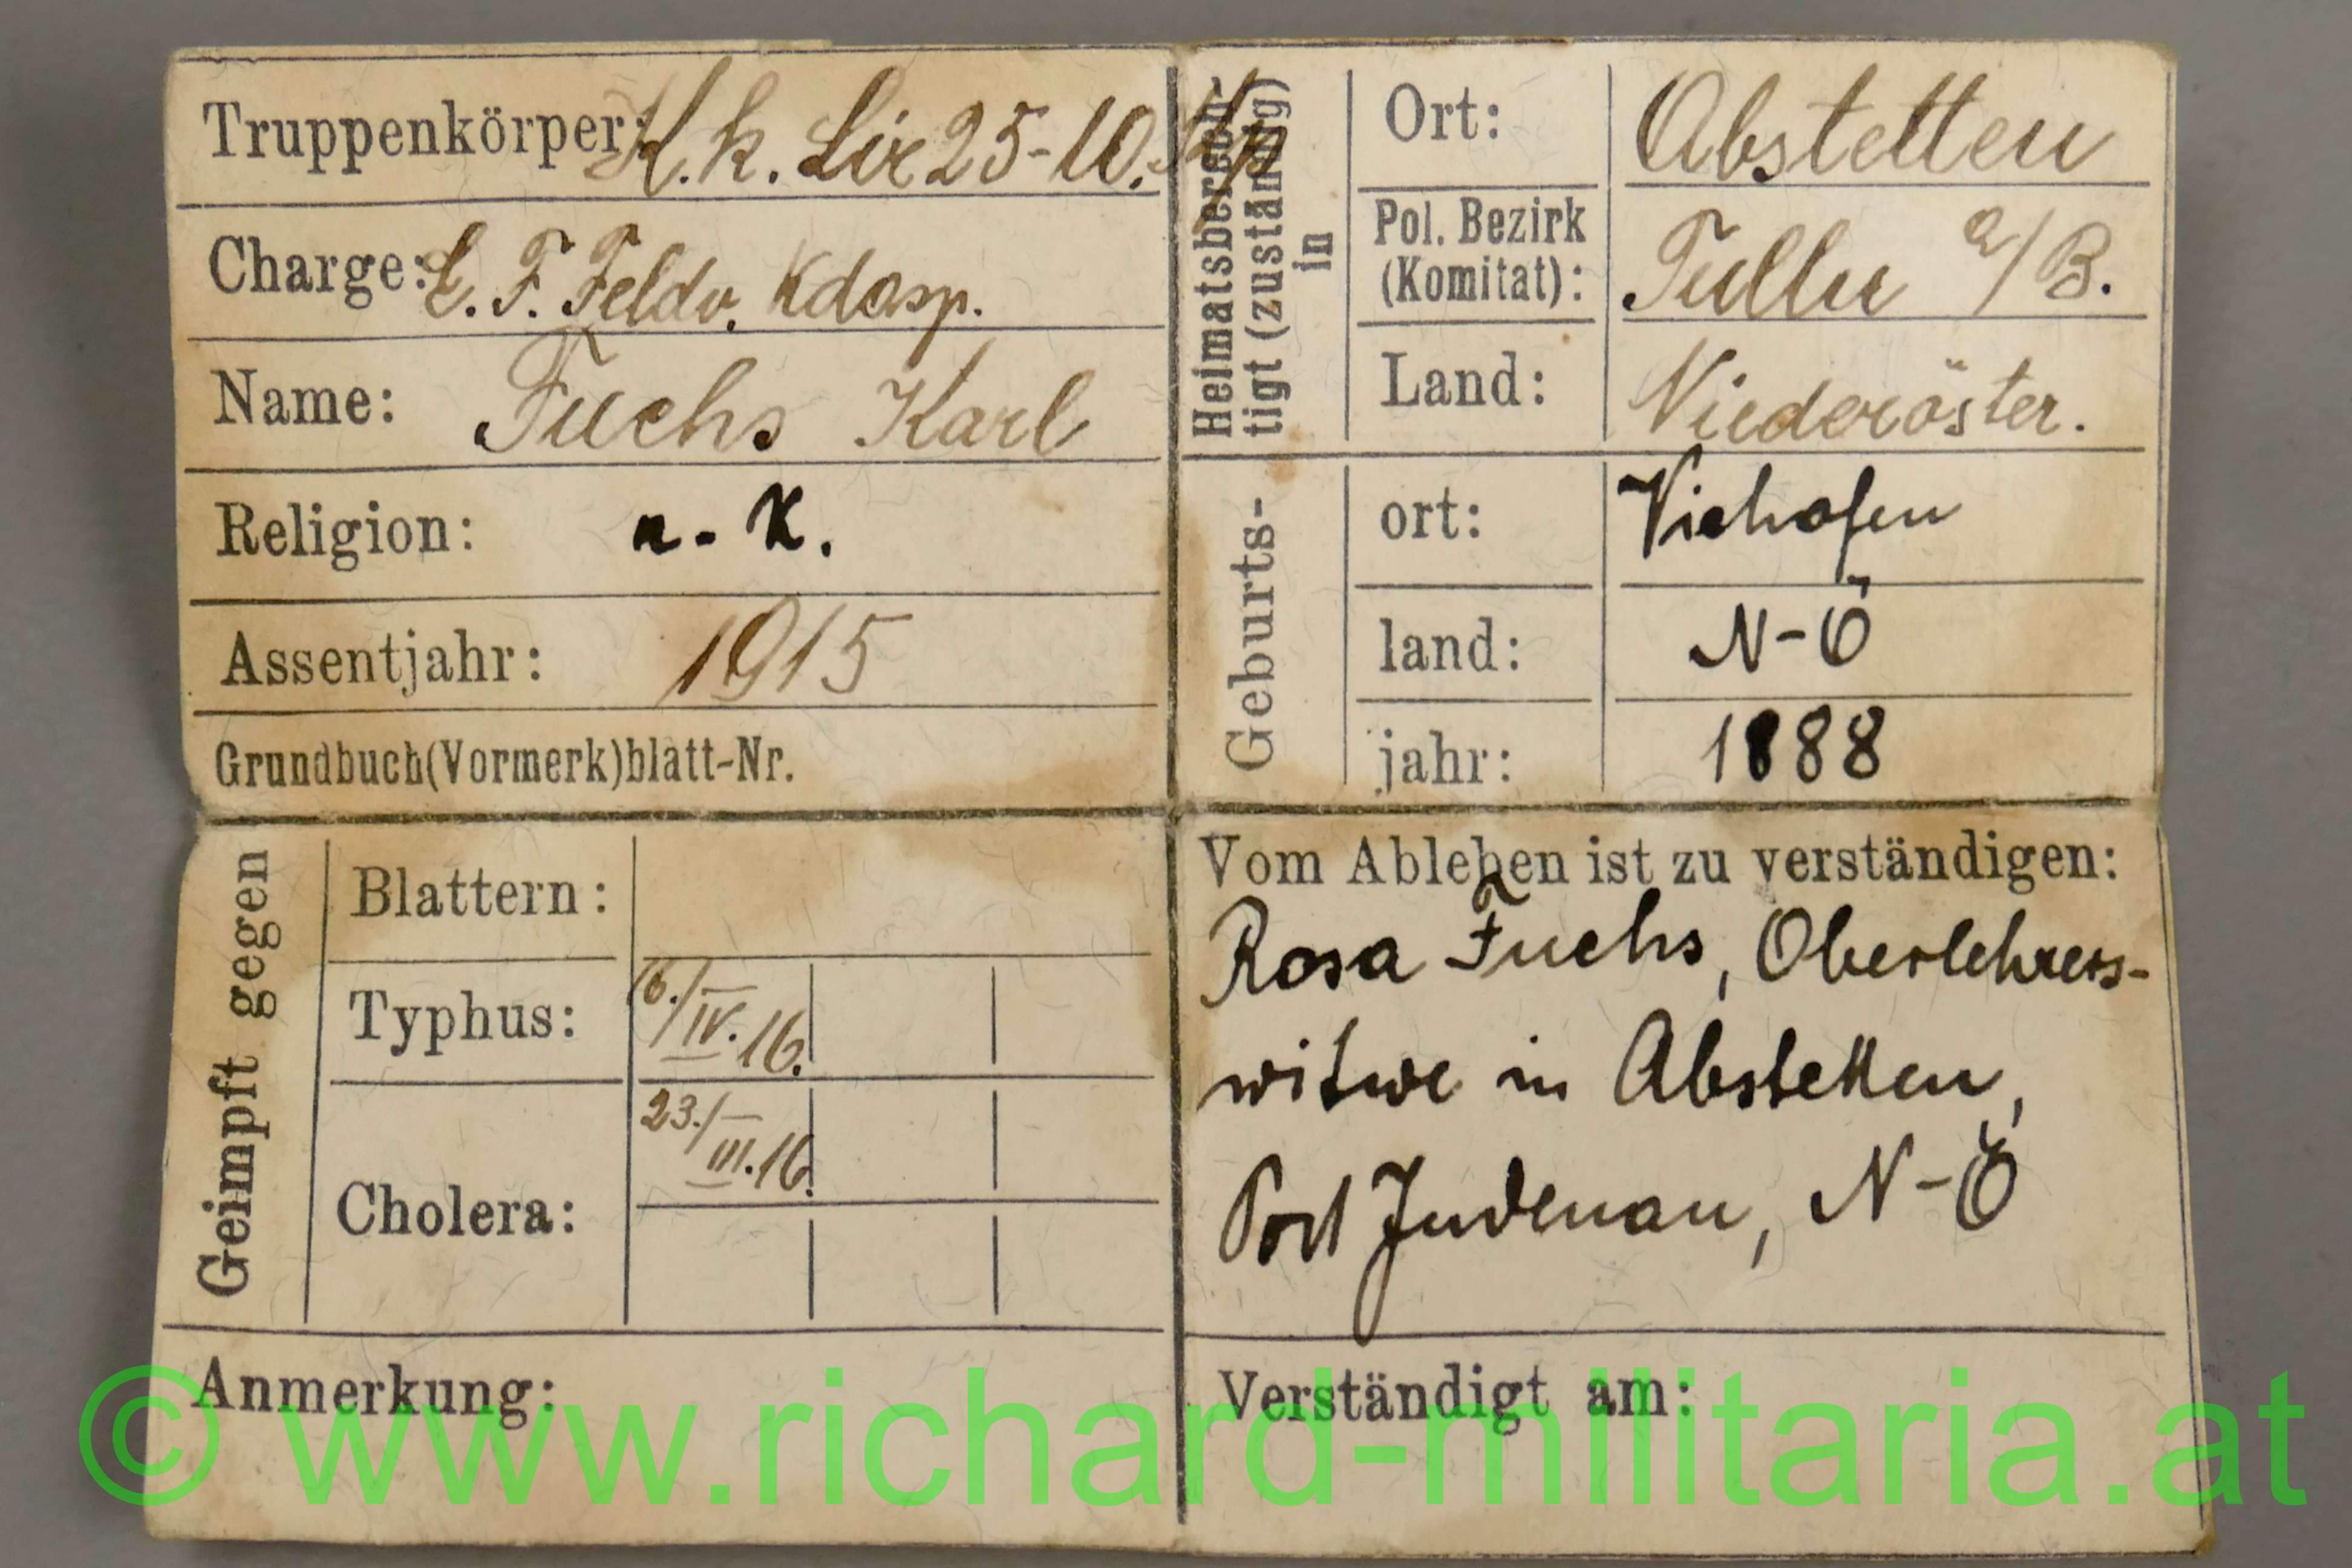 Truppenkörper: K. k. Lir 25-10. Kp
Charge: E. F. Feldw. Kdasp.
Name: Fuchs Karl
Religion: r. K.
Assentjahr: 1915
Grundbuch(Vormerk)blatt-Nr.
Heimatsberech-
tigt (zuständig)
in
Ort: Abstetten
Pol. Bezirk
(Komitat): Tulln a/B.
Land: Niederöster.
Geburts-
ort: Viehofen
land: N-Ö
jahr: 1888
Geimpft gegen
Blattern:
Typhus: 16./IV. 16.
Cholera: 23./III. 16.
Anmerkung:
Vom Ableben ist zu verständigen:
Rosa Fuchs, Oberlehrers-
witwe in Abstetten,
Post Judenau, N-Ö
Verständigt am:
© www.richard-militaria.at